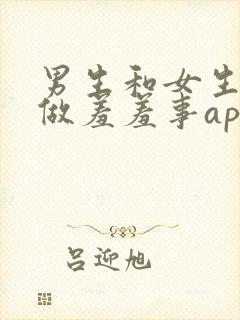 男生和女生
做羞羞事ap
吕迎旭